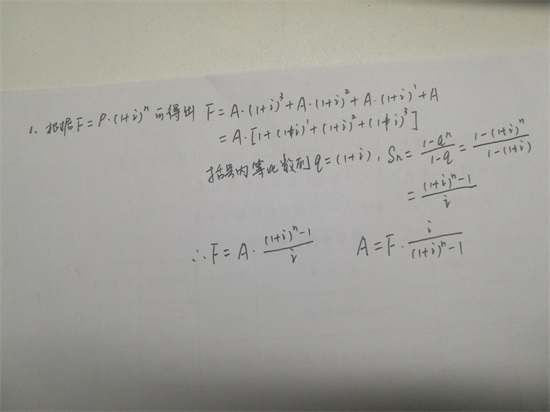 1. 根据F=P·(1+i)^n 可得出 F=A·(1+i)^3+A·(1+i)^2+A·(1+i)^1+A
=A·[1+(1+i)^1+(1+i)^2+(1+i)^3]
括号内等比数列q=(1+i), Sn=\frac{1-q^n}{1-q}=\frac{1-(1+i)^n}{1-(1+i)}
=\frac{(1+i)^n-1}{i}
∴F=A·\frac{(1+i)^n-1}{i} A=F·\frac{i}{(1+i)^n-1}